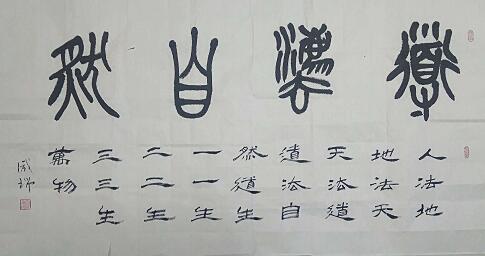 道灋自然
人法地
地法天
天法道
道法自
然道生
一一生
二二生
三三生
萬物